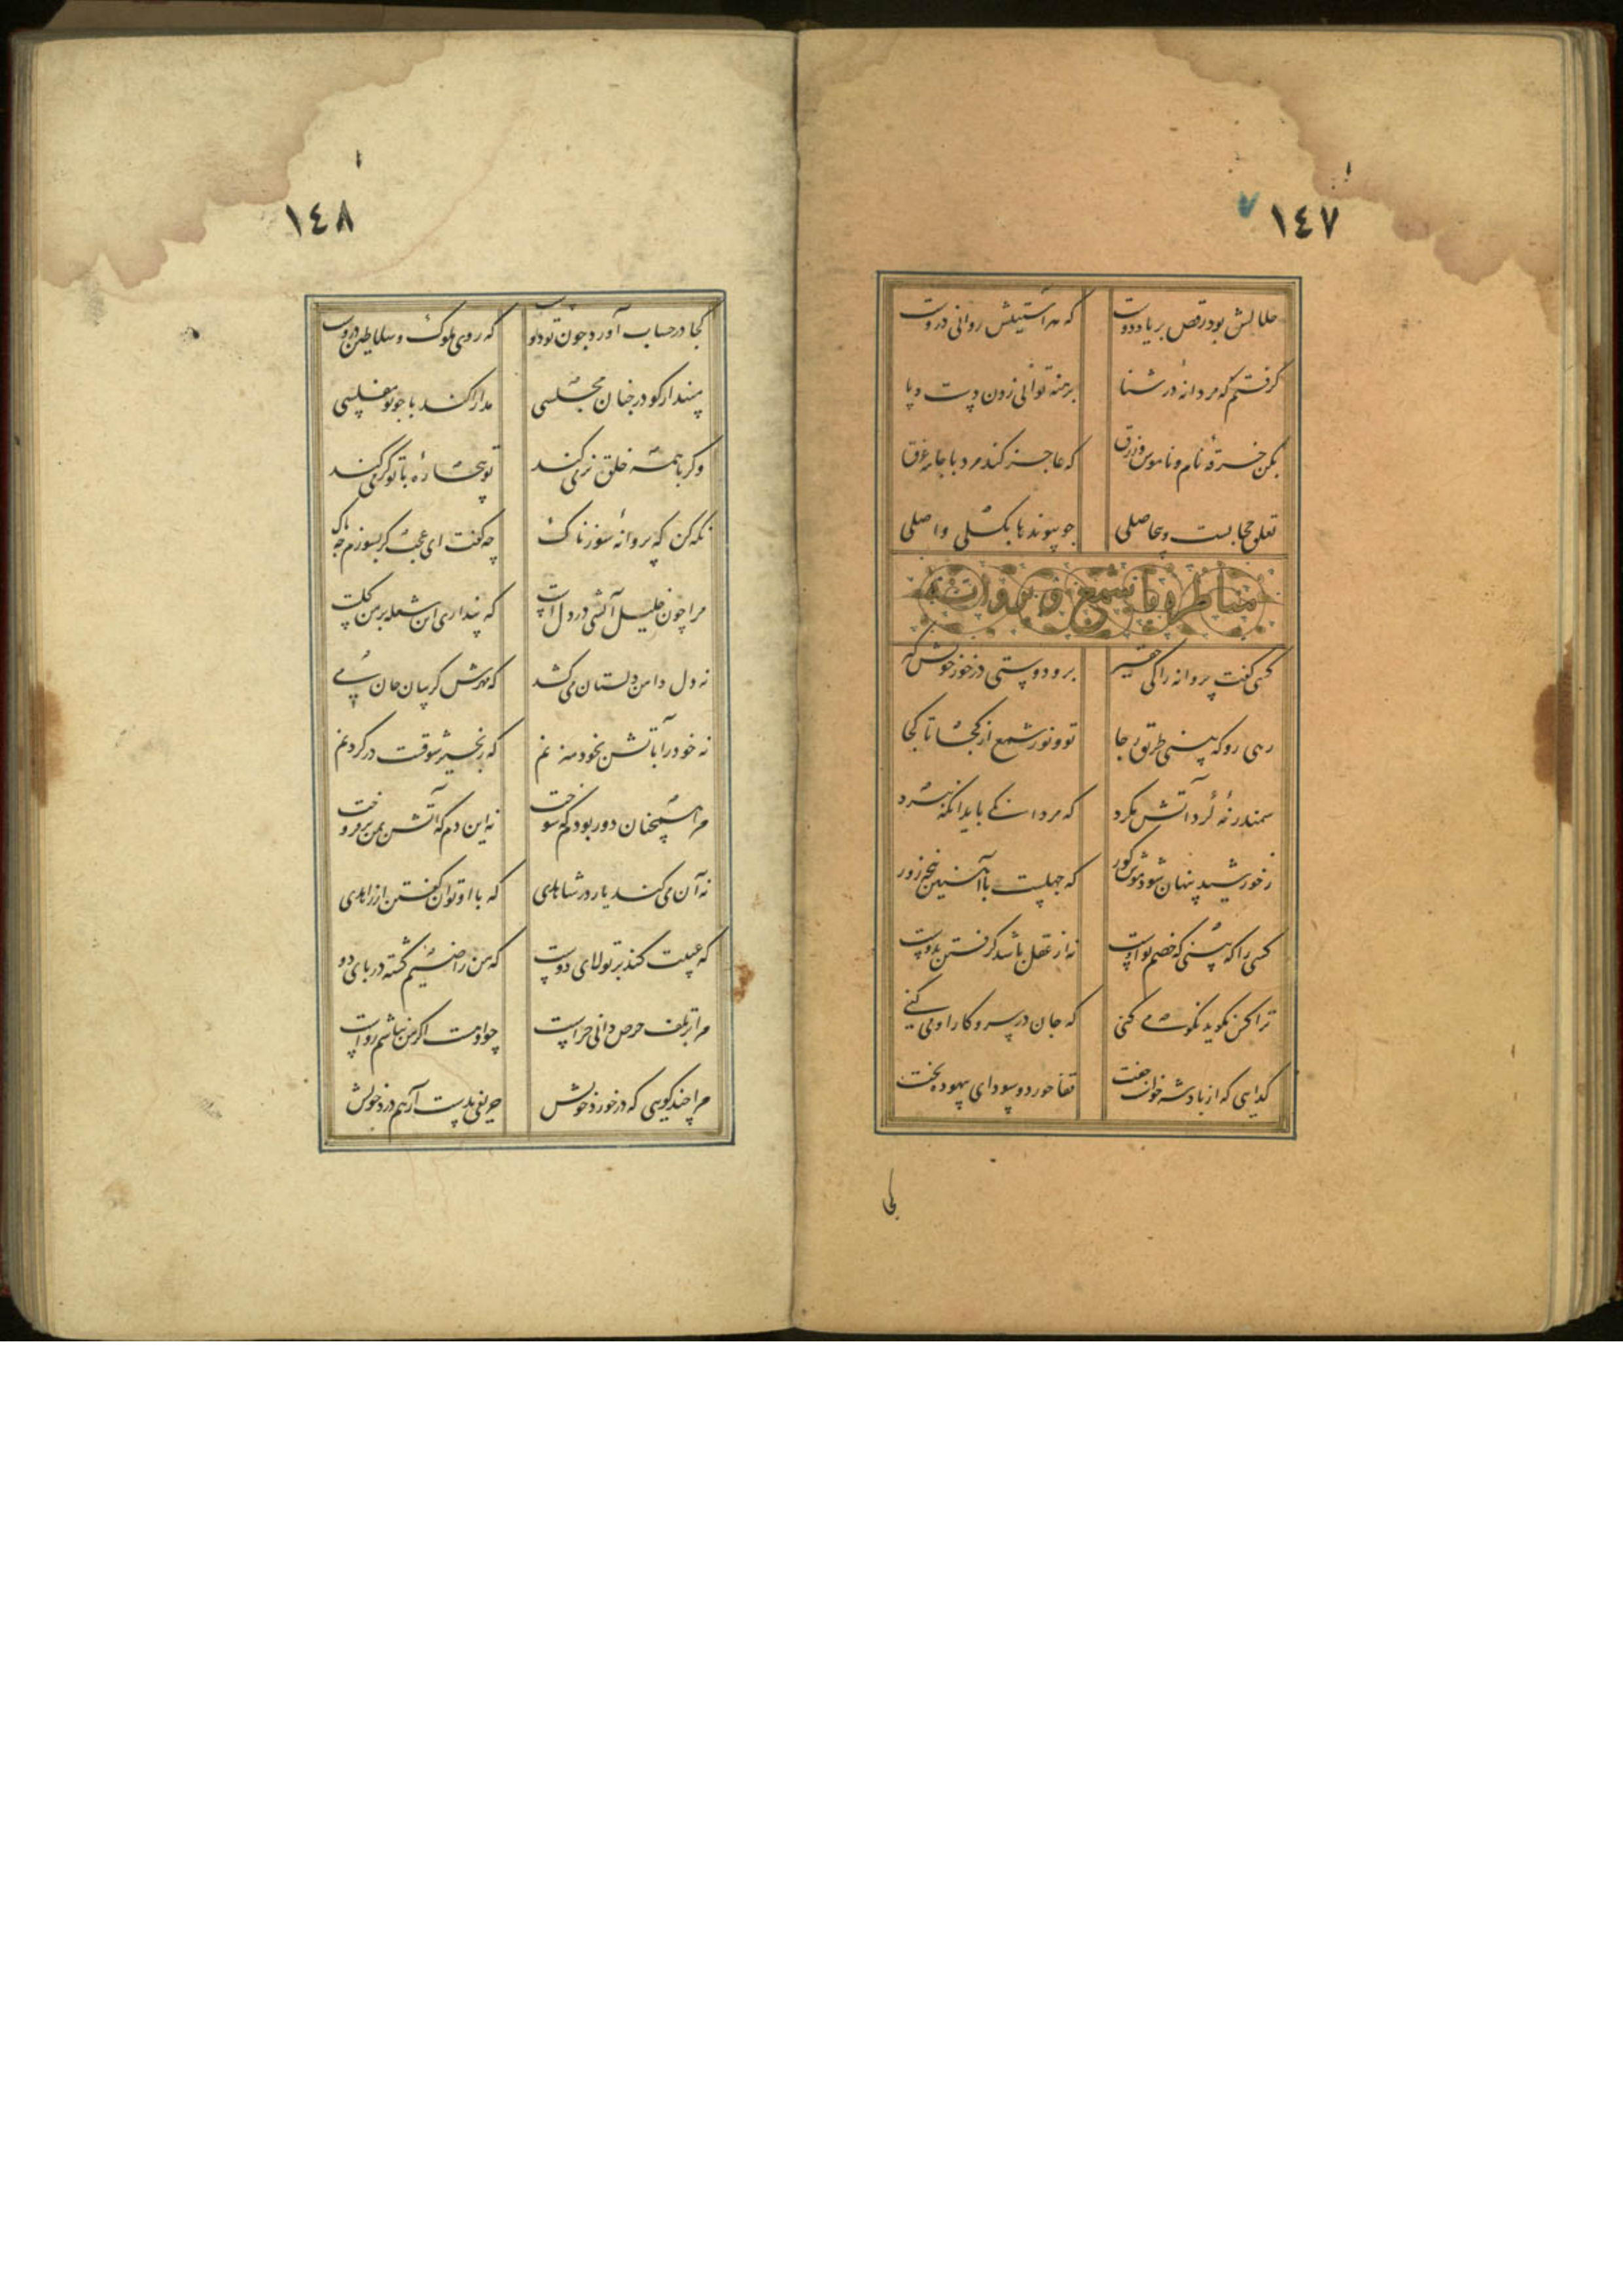 ١٤٧
حلالش بود رقص بر یاد دوست که هر آستینش روانی دروست
گرفتم که مردانهٔ در شنا برهنه توانی زدن دست و پا
بکن خرقهٔ نام و ناموس و زرق که عاجز کند مرد با جامه غرق
تعلق حجابست و بی‌حاصلی چو پیوندها بگسلی واصلی
مناظره با شمع و پروانه
کسی گفت پروانه را کی حقیر برو دوستی در خور خویش گیر
رهی رو که بینی طریق رجا تو و نور شمع از کجا تا کجا
سمندر نهٔ گرد آتش مگرد که مردانگی باید آنگه نبرد
ز خورشید پنهان شود موش کور که جهلست با آهنین پنجه زور
کسی را که بینی که خصم تو اوست نه از عقل باشد گرفتن بدوست
ترا کس نگوید نکو می کنی که جان در سر و کار او می کنی
گدایی که از پادشه خواست جفت قفا خورد و سودای بیهوده پخت
کجا
١٤٨
کجا در حساب آورد چون تو دوست که روی ملوک و سلاطین دروست
مپندار کو در چنان مجلسی مدارا کند با چو تو مفلسی
وگر با همه خلق نرمی کند تو بیچارهٔ با تو گرمی کند
نگه کن که پروانهٔ سوزناک چه گفت ای عجب گر بسوزم چه باک
مرا چون خلیل آتشی در دل است که پنداری این شعله بر من گلست
نه دل دامن دلستان می کشد که مهرش گریبان جان می
نه خود را بآتش بخود می زنم که زنجیر شوقست در گردنم
مرا همچنان دور بودم که سوخت نه این دم که آتش بمن برفروخت
نه آن می کند یار در شاهدی که با او توان گفتن از زاهدی
که عیبت کند بر تولای دوست که من راضیم کشته در پای دو
مرا بر تلف حرص دانی چراست چو او هست اگر من نباشم رواست
مرا چند گویی که در خورد خویش حریفی بدست آر همدرد خویش